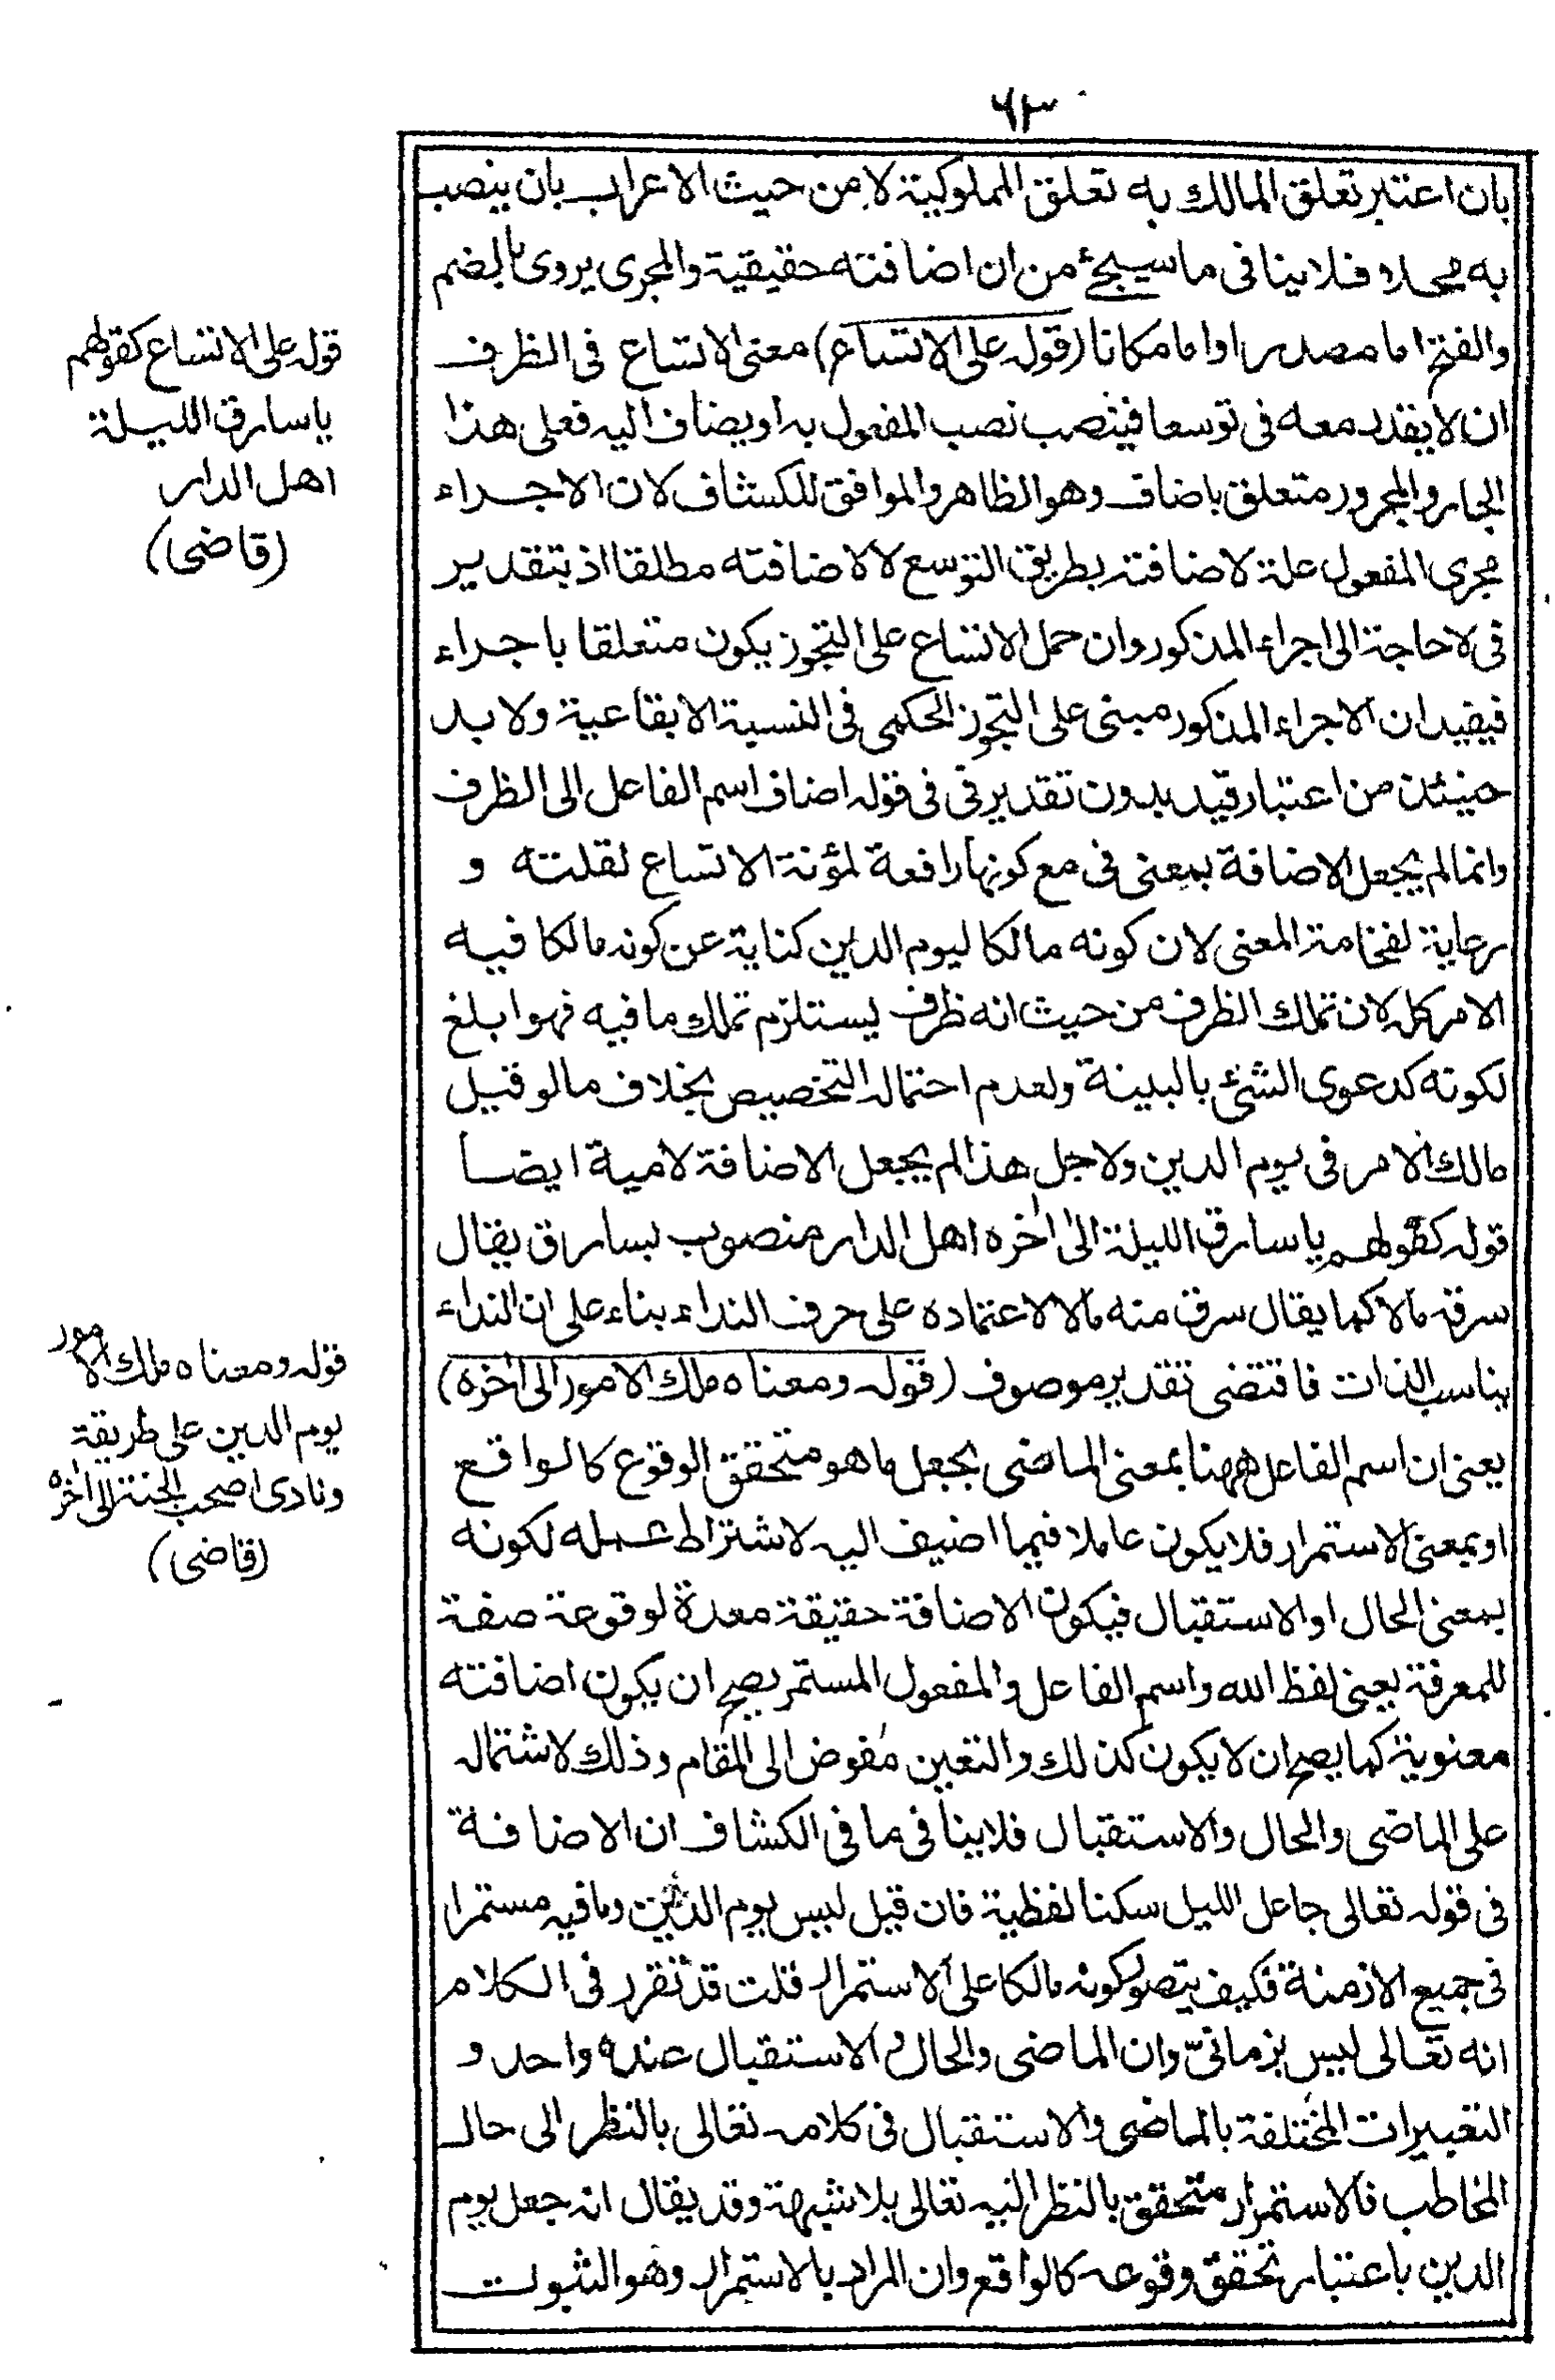 ٦٣
بان اعتبر تعلق المالك به تعلق المملوكية لا من حيث الاعراب بان ينصب
به محلا فلا ينافى ما سيجئ من ان اضافته حقيقية والمجرى يروى بالضم
والفتح اما مصدرا واما مكانا (قوله على الاتساع) معنى الاتساع فى الظرف
ان لا يقدر معه فى توسعا فينصب نصب المفعول به او يضاف اليه فعلى هذا
الجار والمجرور متعلق باضاف وهو الظاهر والموافق للكشاف لان الاجراء
مجرى المفعول علة لاضافته بطريق التوسع لا لاضافته مطلقا اذ بتقدير
فى لا حاجة الى اجراء المذكور وان حمل الاتساع على التجوز يكون متعلقا باجراء
فيفيد ان الاجراء المذكور مبنى على التجوز الحكمى فى النسبة الايقاعية ولا بد
حينئذ من اعتبار قيد بدون تقدير فى فى قوله اضاف اسم الفاعل الى الظرف
وانما لم يجعل الاضافة بمعنى فى مع كونها رافعة لمؤنة الاتساع لقلته و
رعاية لفخامة المعنى لان كونه مالكا ليوم الدين كناية عن كونه مالكا فيه
الامر كله لان تملك الظرف من حيث انه ظرف يستلزم تملك ما فيه فهو ابلغ
لكونه كدعوى الشئ بالبينة ولعدم احتماله التخصيص بخلاف ما لو قيل
مالك الامر فى يوم الدين ولاجل هذا لم يجعل الاضافة لامية ايضا
قوله كقولهم يا سارق الليلة الى اٰخره اهل الدار منصوب بسارق يقال
سرقه مالا كما يقال سرق منه مالا لاعتماده على حرف النداء بناء على ان النداء
يناسب الذات فاقتضى تقدير موصوف (قوله ومعناه ملك الامور الى اٰخره)
يعنى ان اسم الفاعل ههنا بمعنى الماضى بجعل ما هو متحقق الوقوع كالواقع
او بمعنى الاستمرار فلا يكون عاملا فيما اضيف اليه لاشتراط عمله لكونه
بمعنى الحال او الاستقبال فيكون الاضافة حقيقة معدة لوقوعه صفة
للمعرفة يعنى لفظ الله واسم الفاعل والمفعول المستمر يصح ان يكون اضافته
معنوية كما يصح ان لا يكون كذلك والتعين مفوض الى المقام وذلك لاشتماله
على الماضى والحال والاستقبال فلا ينافى ما فى الكشاف ان الاضافة
فى قوله تعالى جاعل الليل سكنا لفظية فان قيل ليس يوم الدين وما فيه مستمرا
فى جميع الازمنة فكيف يتصور كونه مالكا على الاستمرار قلت قد تقرر فى الكلام
انه تعالى ليس بزمانى وان الماضى والحال والاستقبال عنده واحد و
التعبيرات المختلفة بالماضى والاستقبال فى كلامه تعالى بالنظر الى حال
المخاطب فالاستمرار متحقق بالنظر اليه تعالى بلا شبهة وقد يقال انه جعل يوم
الدين باعتبار تحقق وقوعه كالواقع وان المراد بالاستمرار وهو الثبوت
قوله على الاتساع كقولهم
يا سارق الليلة
اهل الدار
(قاضى)
قوله ومعناه ملك الامور
يوم الدين على طريقة
ونادى اصحب الجنة الى اٰخره
(قاضى)